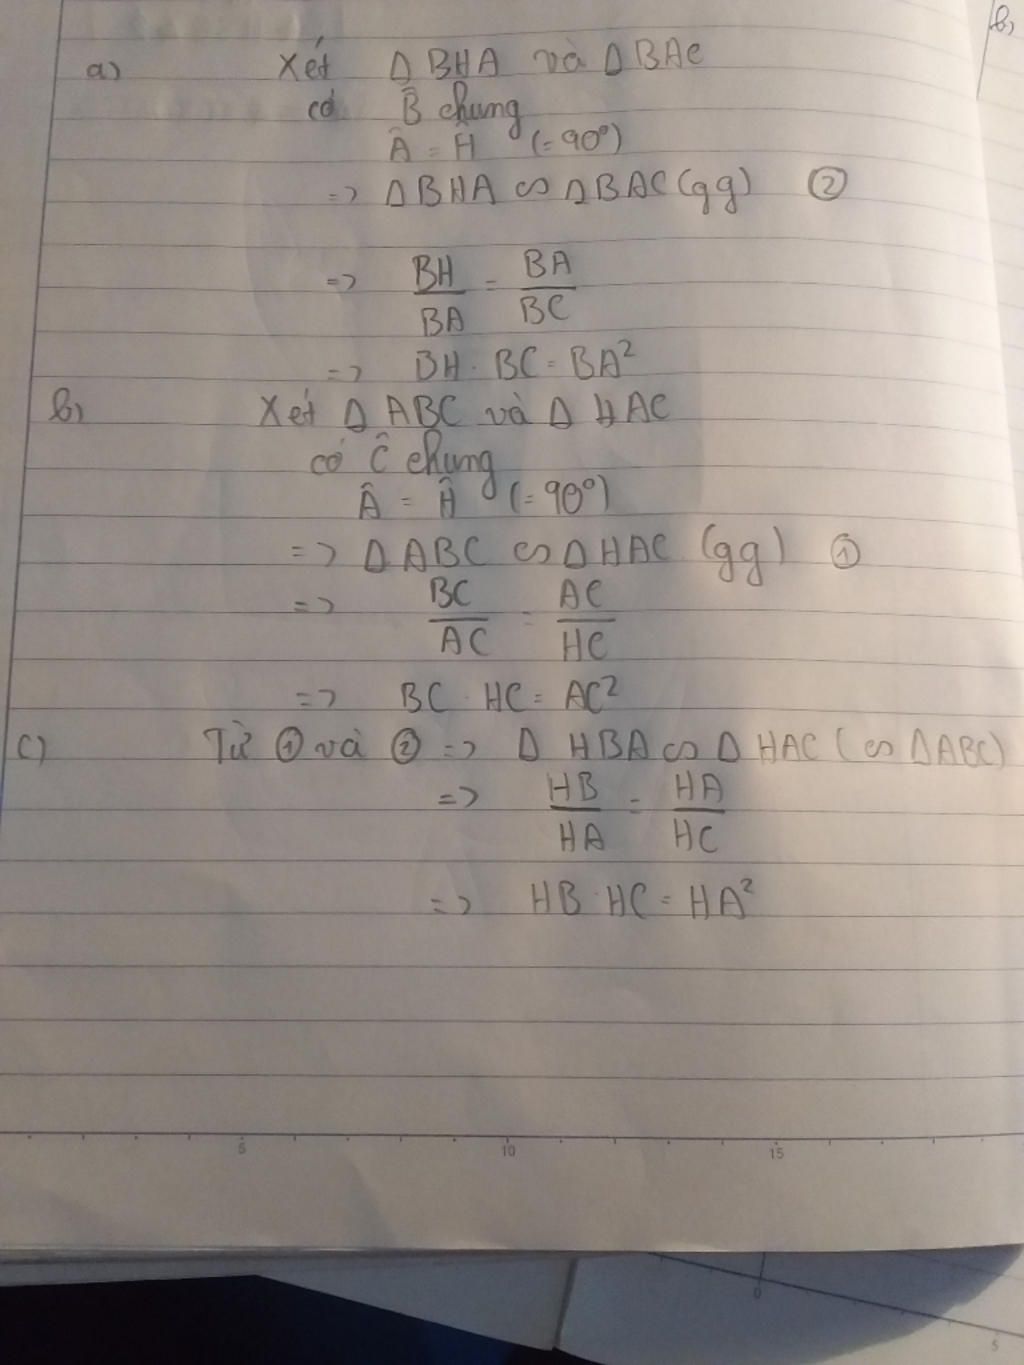 b)
a) Xét Δ BHA và Δ BAC
có B̂ chung
Â = Ĥ (= 90°)
=> Δ BHA ∽ Δ BAC (gg) ②
=> BH/BA = BA/BC
=> BH . BC = BA²
b) Xét Δ ABC và Δ HAC
có Ĉ chung
Â = Ĥ (= 90°)
=> Δ ABC ∽ Δ HAC (gg) ①
=> BC/AC = AC/HC
=> BC . HC = AC²
c) Từ ① và ② => Δ HBA ∽ Δ HAC (∽ Δ ABC)
=> HB/HA = HA/HC
=> HB . HC = HA²
5 10 15
0
5